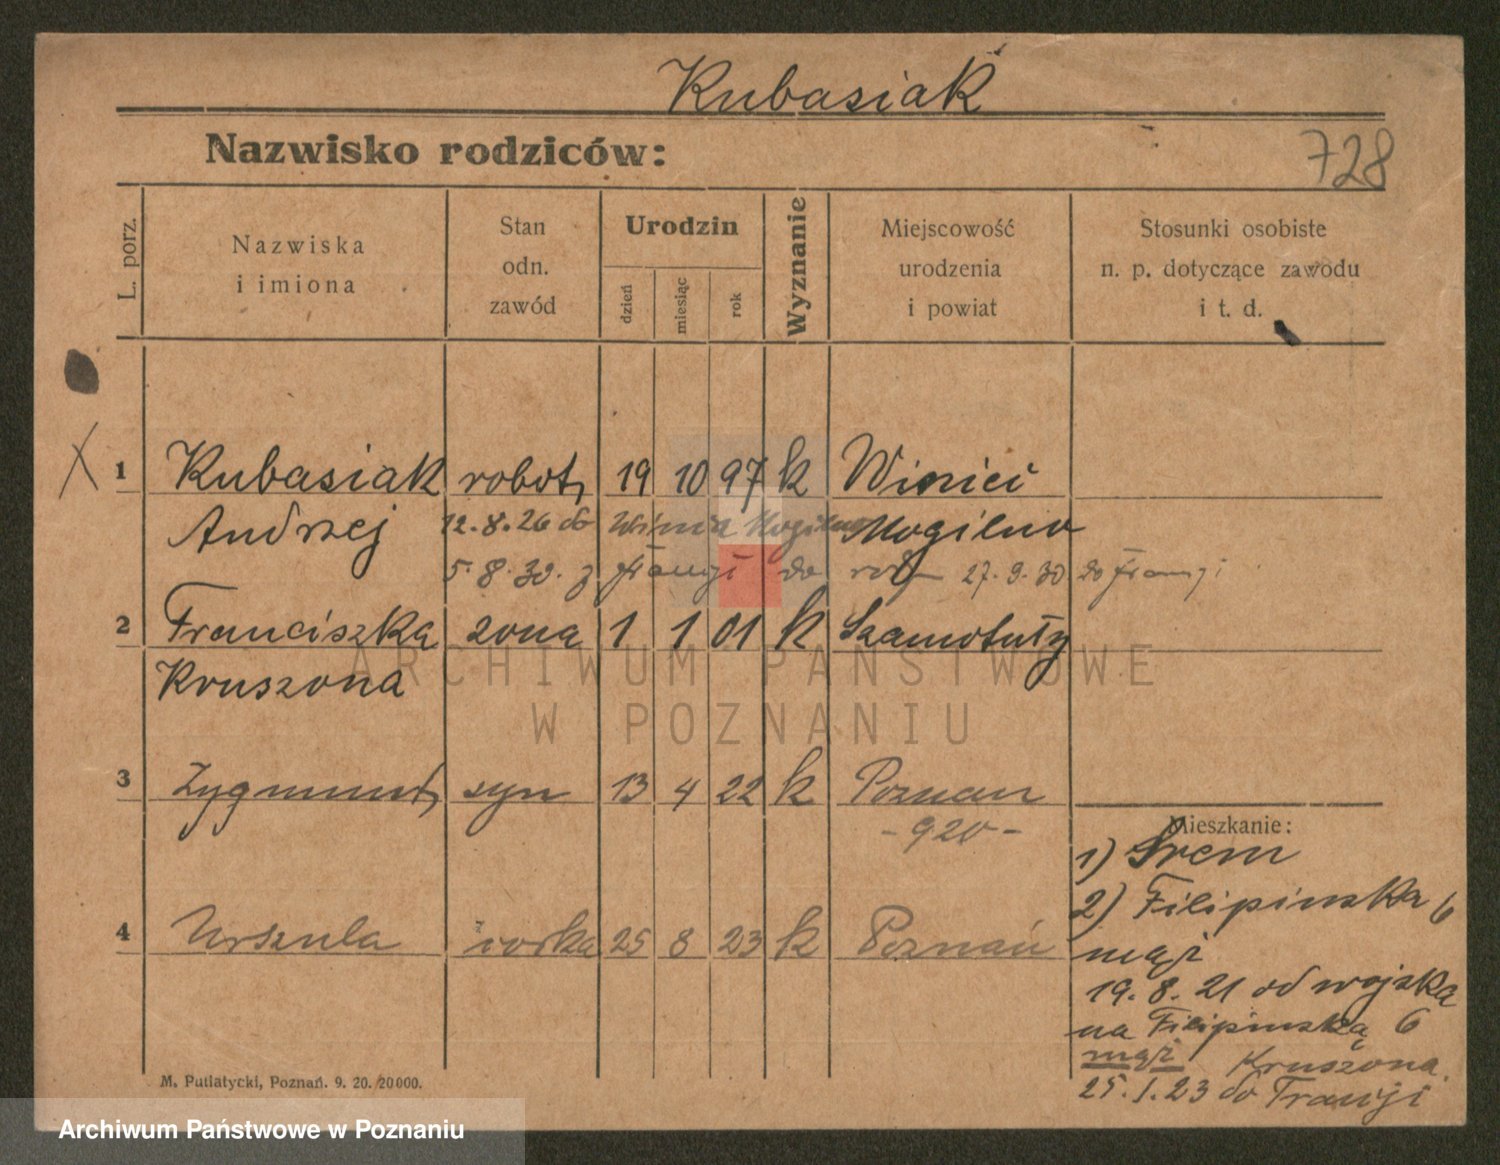 Kubasiak
Nazwisko rodziców:
728
L. porz.
Nazwiska
i imiona
Stan
odn.
zawód
Urodzin
dzień
miesiąc
rok
Wyznanie
Miejscowość
urodzenia
i powiat
Stosunki osobiste
n. p. dotyczące zawodu
i t. d.
X 1 Kubasiak robotn 19 10 97 k Winiec
Andrzej 12.8.26 do Mogilno Mogilno
5.8.30. z Francji do 27.9.30 do Francji
2 Franciszka żona 1 1 01 k Szamotuły
Kruszona
3 Zygmunt syn 13 4 22 k Poznan
- 920 -
4 Urszula córka 25 8 23 k Poznań
Mieszkanie:
1) Śrem
2) Filipinska 6
mąż
19.8.21 od wojska
na Filipinską 6
mąż Kruszona
25.1.23 do Francji
M. Putiatycki, Poznań. 9. 20. 20000.
ARCHIWUM PAŃSTWOWE
W POZNANIU
Archiwum Państwowe w Poznaniu